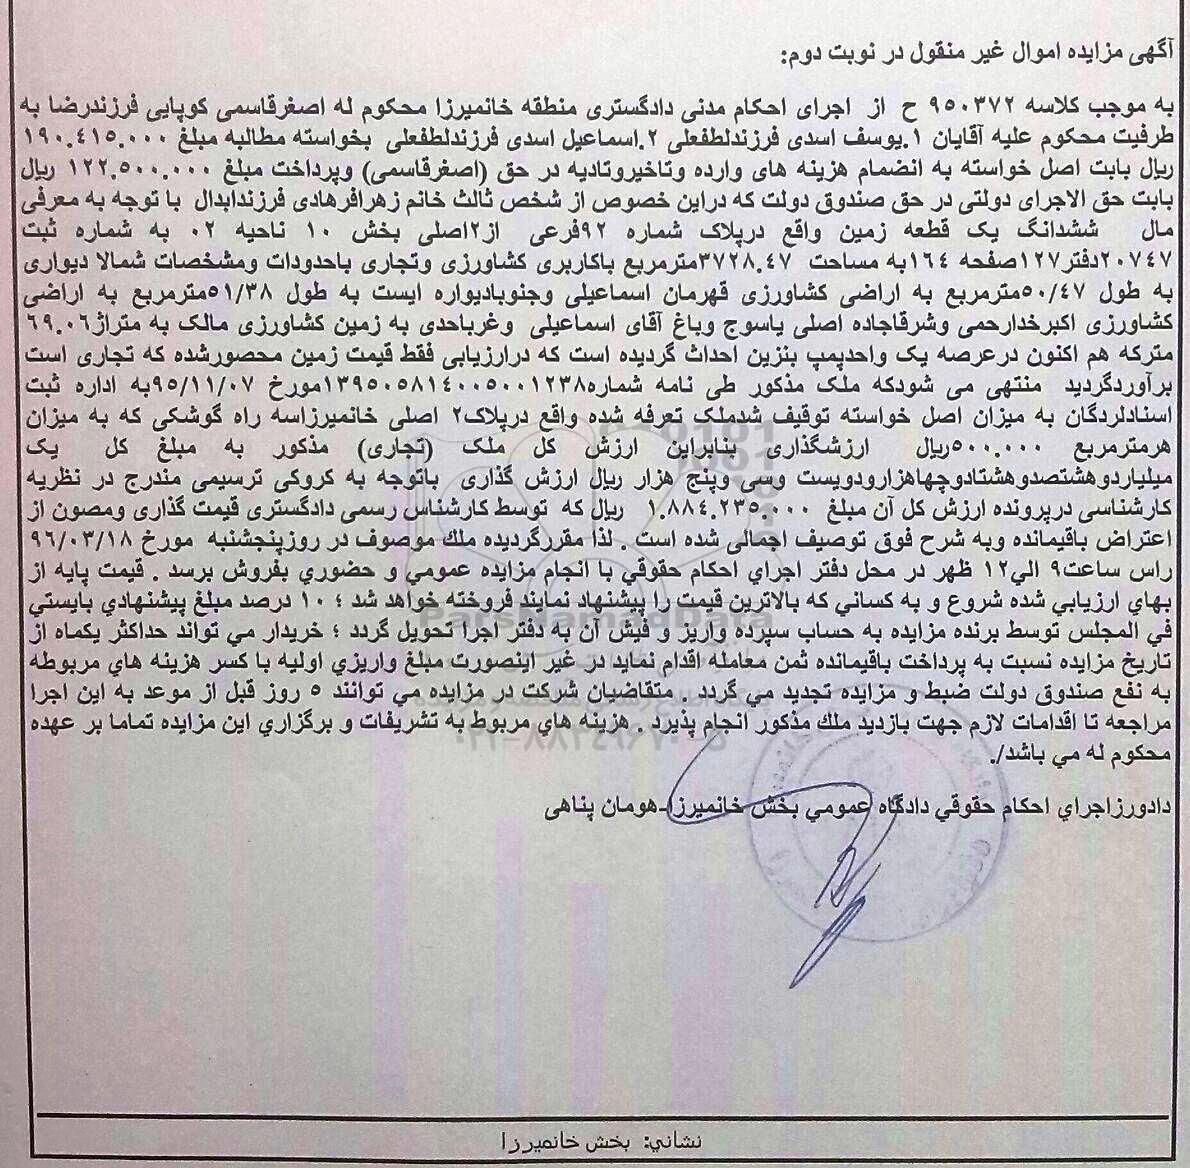 آگهی مزایده اموال غیر منقول در نوبت دوم:
به موجب کلاسه ۹۵۰۳۷۲ ح از اجرای احکام مدنی دادگستری منطقه خانمیرزا محکوم له اصغرقاسمی کوپایی فرزندرضا به
طرفیت محکوم علیه آقایان ۱.یوسف اسدی فرزندلطفعلی ۲.اسماعیل اسدی فرزندلطفعلی بخواسته مطالبه مبلغ ۱۹۰.۴۱۵.۰۰۰
ریال بابت اصل خواسته به انضمام هزینه های وارده وتاخیروتادیه در حق (اصغرقاسمی) وپرداخت مبلغ ۱۲۲.۵۰۰.۰۰۰ ریال
بابت حق الاجرای دولتی در حق صندوق دولت که دراین خصوص از شخص ثالث خانم زهرافرهادی فرزندابدال با توجه به معرفی
مال ششدانگ یک قطعه زمین واقع درپلاک شماره ۹۲فرعی از۲اصلی بخش ۱۰ ناحیه ۰۲ به شماره ثبت
۲۰۷۴۷دفتر۱۲۷صفحه ۱۶۴به مساحت ۳۷۲۸.۴۷مترمربع باکاربری کشاورزی وتجاری باحدودات ومشخصات شمالا دیواری
به طول ۵۰/۴۷مترمربع به اراضی کشاورزی قهرمان اسماعیلی وجنوبادیواره ایست به طول ۵۱/۳۸مترمربع به اراضی
کشاورزی اکبرخدارحمی وشرقاجاده اصلی یاسوج وباغ آقای اسماعیلی وغرباحدی به زمین کشاورزی مالک به متراژ۶۹.۰۶
مترکه هم اکنون درعرصه یک واحدپمپ بنزین احداث گردیده است که درارزیابی فقط قیمت زمین محصورشده که تجاری است
برآوردگردید منتهی می شودکه ملک مذکور طی نامه شماره۱۳۹۵۰۵۸۱۴۰۰۵۰۰۱۲۳۸مورخ ۹۵/۱۱/۰۷به اداره ثبت
اسنادلردگان به میزان اصل خواسته توقیف شدملک تعرفه شده واقع درپلاک۲ اصلی خانمیرزاسه راه گوشکی که به میزان
هرمترمربع ۵۰۰.۰۰۰ریال ارزشگذاری بنابراین ارزش کل ملک (تجاری) مذکور به مبلغ کل یک
میلیاردوهشتصدوهشتادوچهاهزارودویست وسی وپنج هزار ریال ارزش گذاری باتوجه به کروکی ترسیمی مندرج در نظریه
کارشناسی درپرونده ارزش کل آن مبلغ ۱.۸۸۴.۲۳۵.۰۰۰ ریال که توسط کارشناس رسمی دادگستری قیمت گذاری ومصون از
اعتراض باقیمانده وبه شرح فوق توصیف اجمالی شده است . لذا مقررگردیده ملك موصوف در روزپنجشنبه مورخ ۹۶/۰۳/۱۸
راس ساعت۹ الي۱۲ ظهر در محل دفتر اجراي احكام حقوقي با انجام مزایده عمومي و حضوري بفروش برسد . قیمت پایه از
بهاي ارزیابي شده شروع و به كساني كه بالاترین قیمت را پیشنهاد نمایند فروخته خواهد شد ؛ ۱۰ درصد مبلغ پیشنهادي بایستي
في المجلس توسط برنده مزایده به حساب سپرده واریز و فیش آن به دفتر اجرا تحویل گردد ؛ خریدار مي تواند حداكثر یكماه از
تاریخ مزایده نسبت به پرداخت باقیمانده ثمن معامله اقدام نماید در غیر اینصورت مبلغ واریزي اولیه با كسر هزینه هاي مربوطه
به نفع صندوق دولت ضبط و مزایده تجدید مي گردد . متقاضیان شركت در مزایده مي توانند ۵ روز قبل از موعد به این اجرا
مراجعه تا اقدامات لازم جهت بازدید ملك مذكور انجام پذیرد . هزینه هاي مربوط به تشریفات و برگزاري این مزایده تماما بر عهده
محكوم له مي باشد/.
دادورزاجراي احكام حقوقي دادگاه عمومي بخش خانمیرزا-هومان پناهی
نشاني: بخش خانمیرزا
ParsNamadData